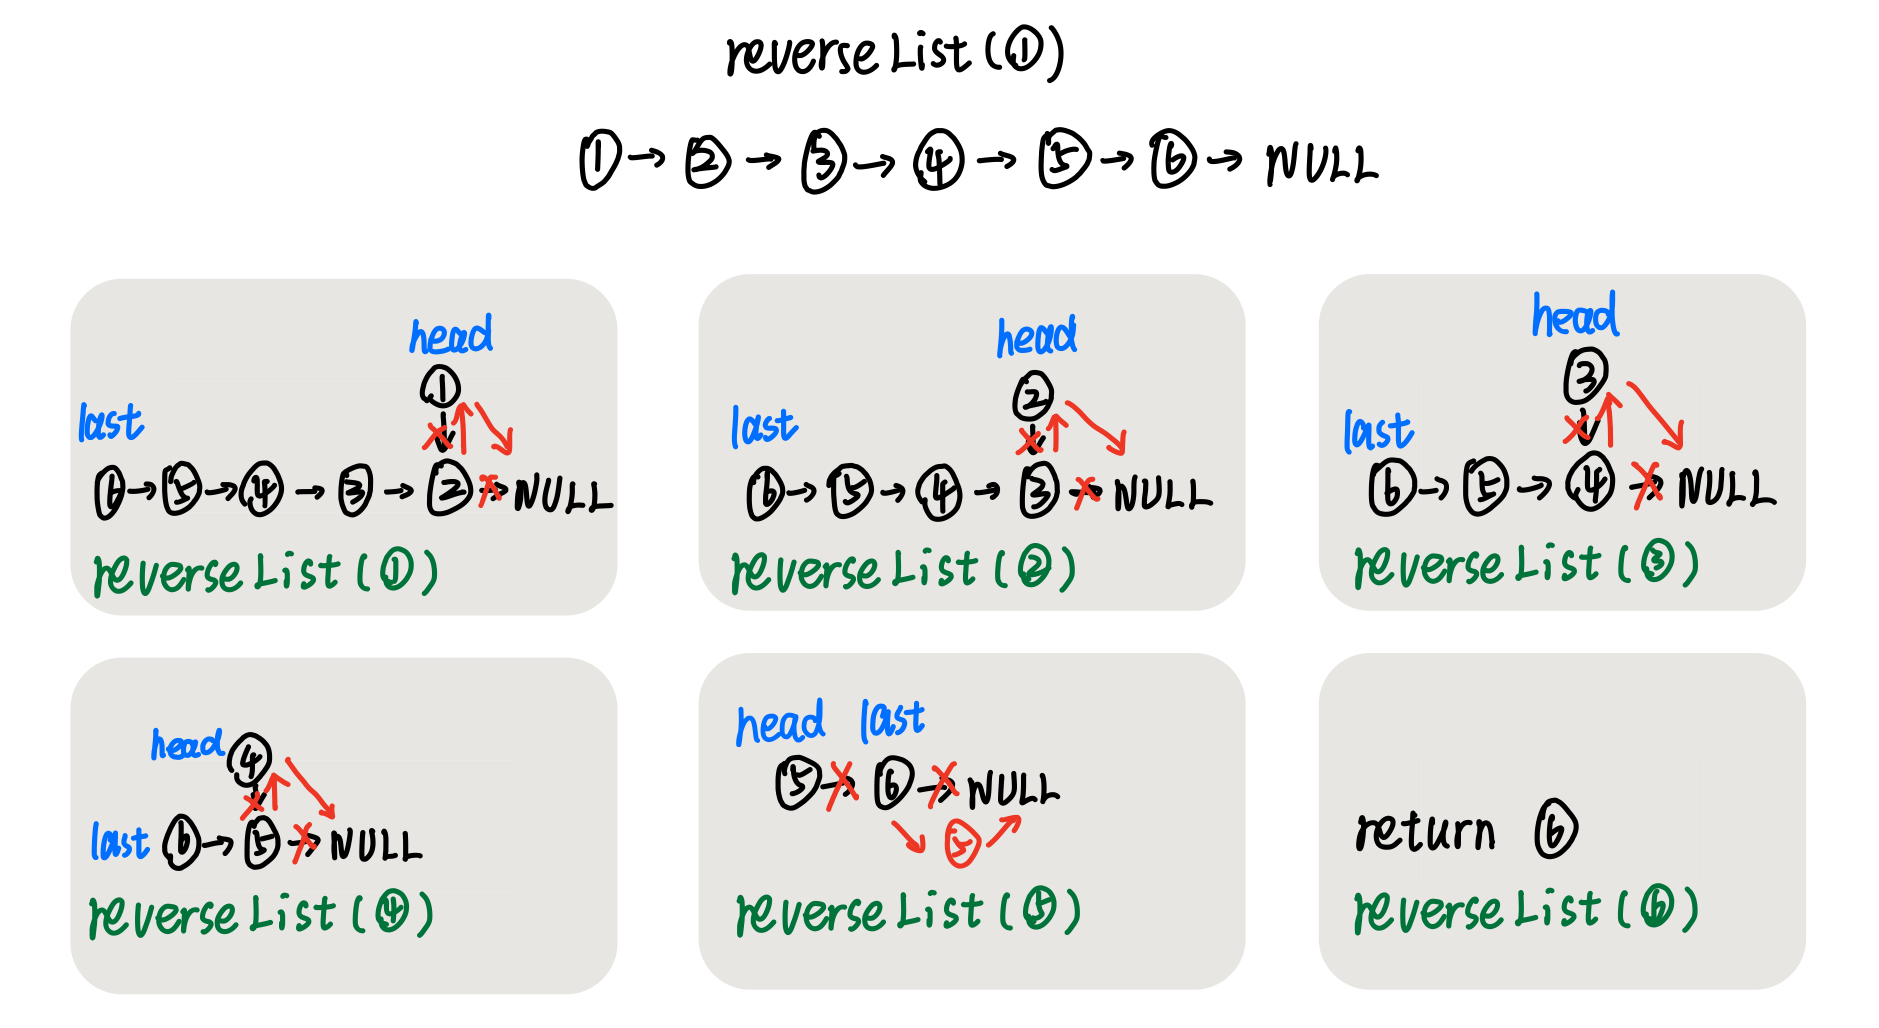 reverseList(①)
① → ② → ③ → ④ → ⑤ → ⑥ → NULL
head
①
last
⑥ → ⑤ → ④ → ③ → ② → NULL
reverseList(①)
head
②
last
⑥ → ⑤ → ④ → ③ → NULL
reverseList(②)
head
③
last
⑥ → ⑤ → ④ → NULL
reverseList(③)
head ④
last ⑥ → ⑤ → NULL
reverseList(④)
head last
⑤ → ⑥ → NULL
⑤
reverseList(⑤)
return ⑥
reverseList(⑥)